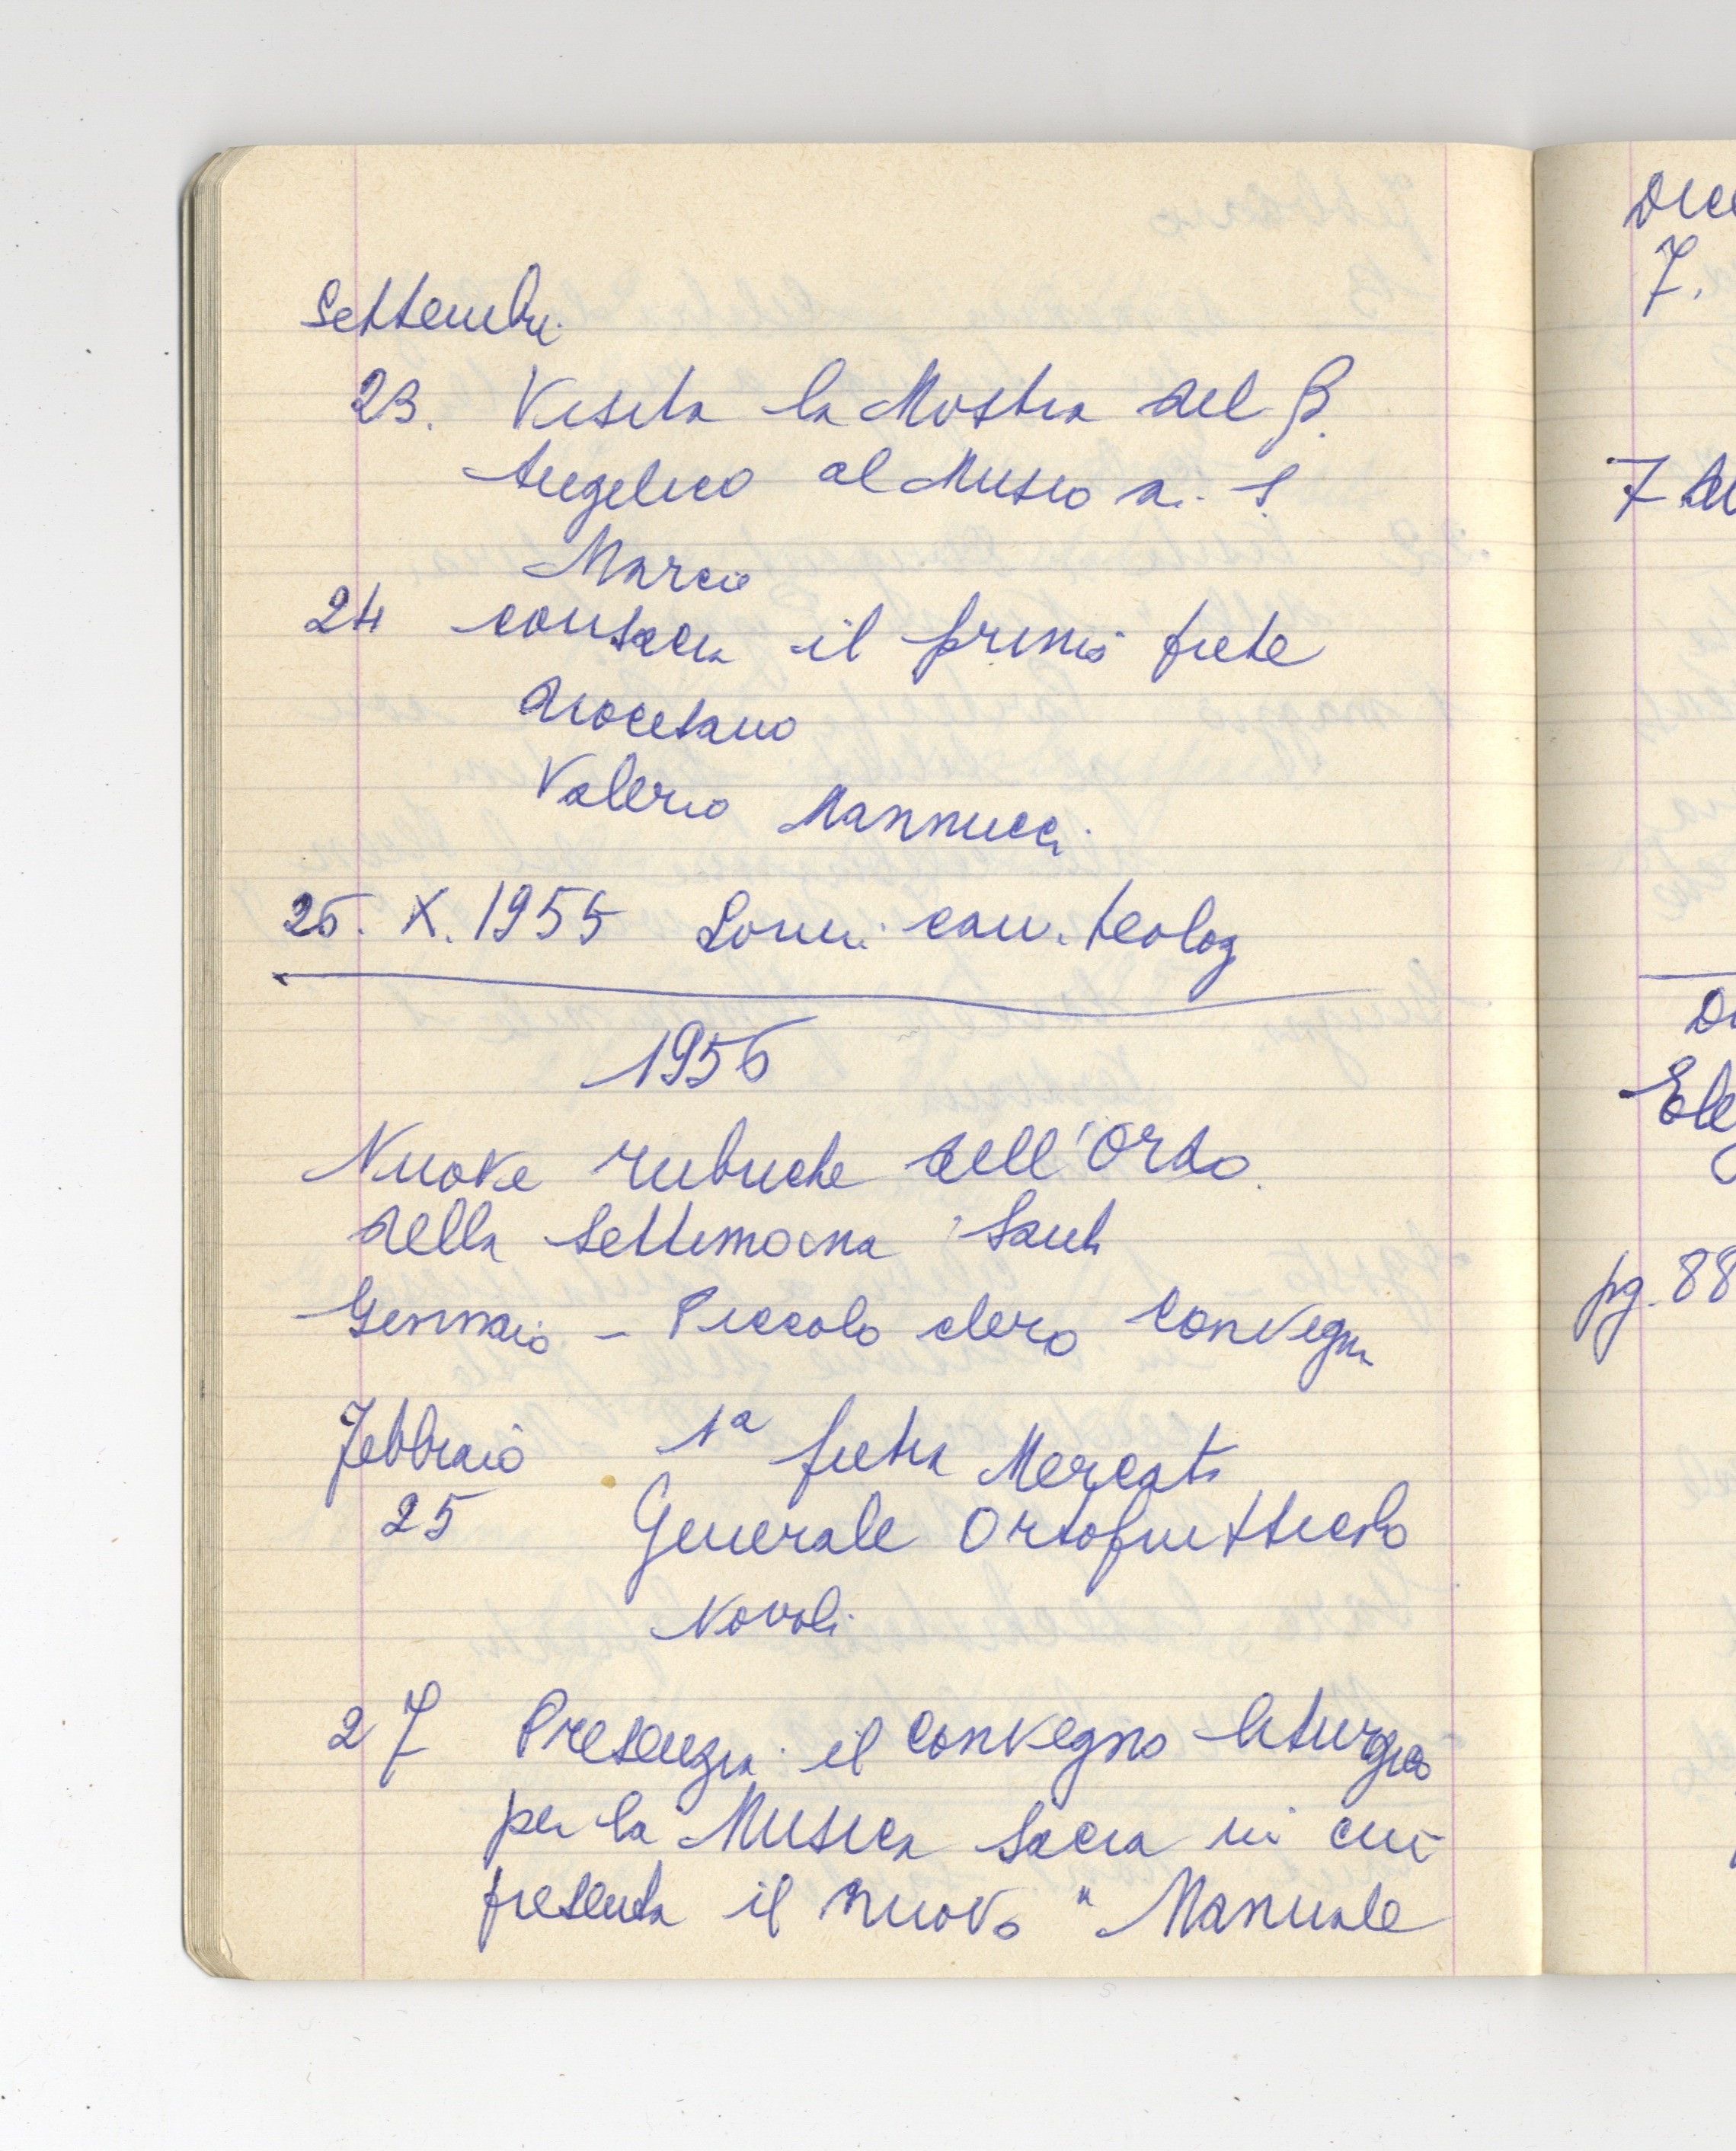 Settembre
23. Visita la Mostra del B.
Angelico al Museo di S.
Marco
24 consacra il primo prete
diocesano
Valerio Mannucci
25. X. 1955 can. teolog
1956
Nuove rubriche dell'Ordo
della Settimana Santa
Gennaio - Piccolo clero Convegno
Febbraio 1ª pietra Mercato
25 Generale Ortofrutticolo
Novoli
27 Presenzia il convegno liturgico
per la Musica Sacra in cui
presenta il nuovo "Manuale
Dice
7.
7
Ele
pg. 88